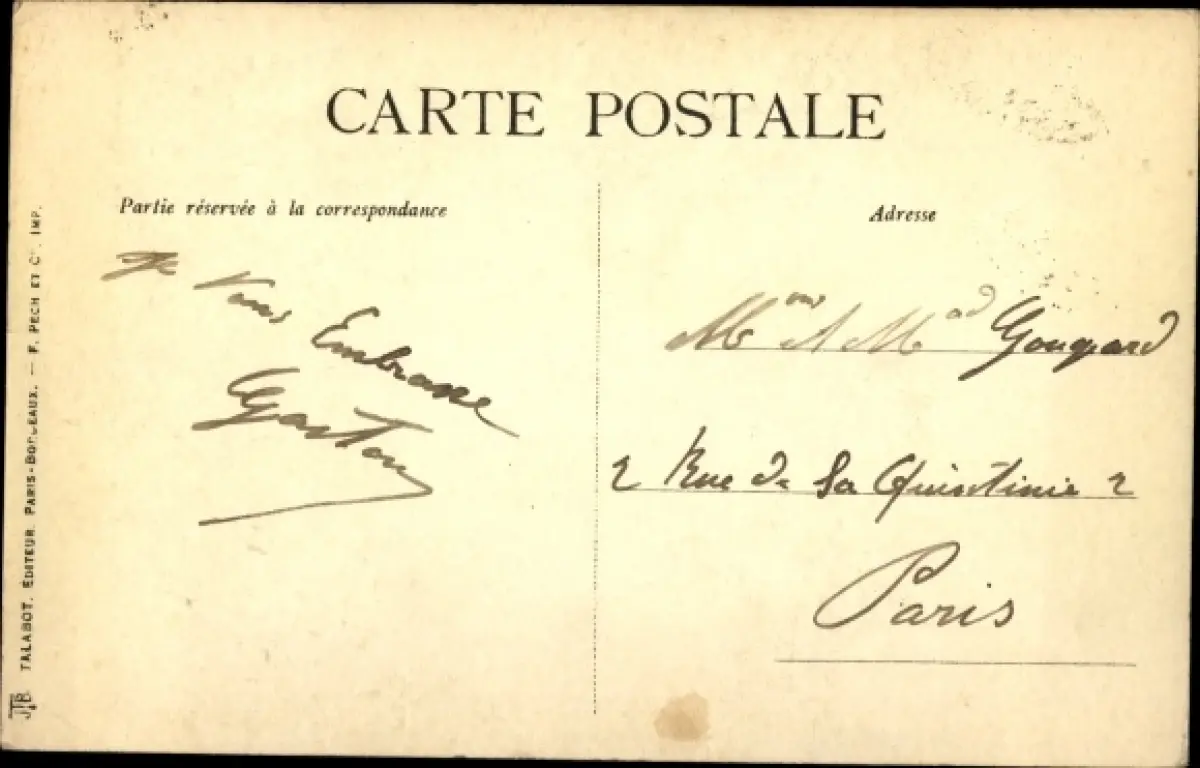 CARTE POSTALE
Partie réservée à la correspondance
Je Vous
Embrasse
Gaston
Adresse
2 Rue de La Quintinie 2
Paris
TALABOT. ÉDITEUR. PARIS-BORDEAUX. — F. PECH ET Cⁱᵉ. IMP.